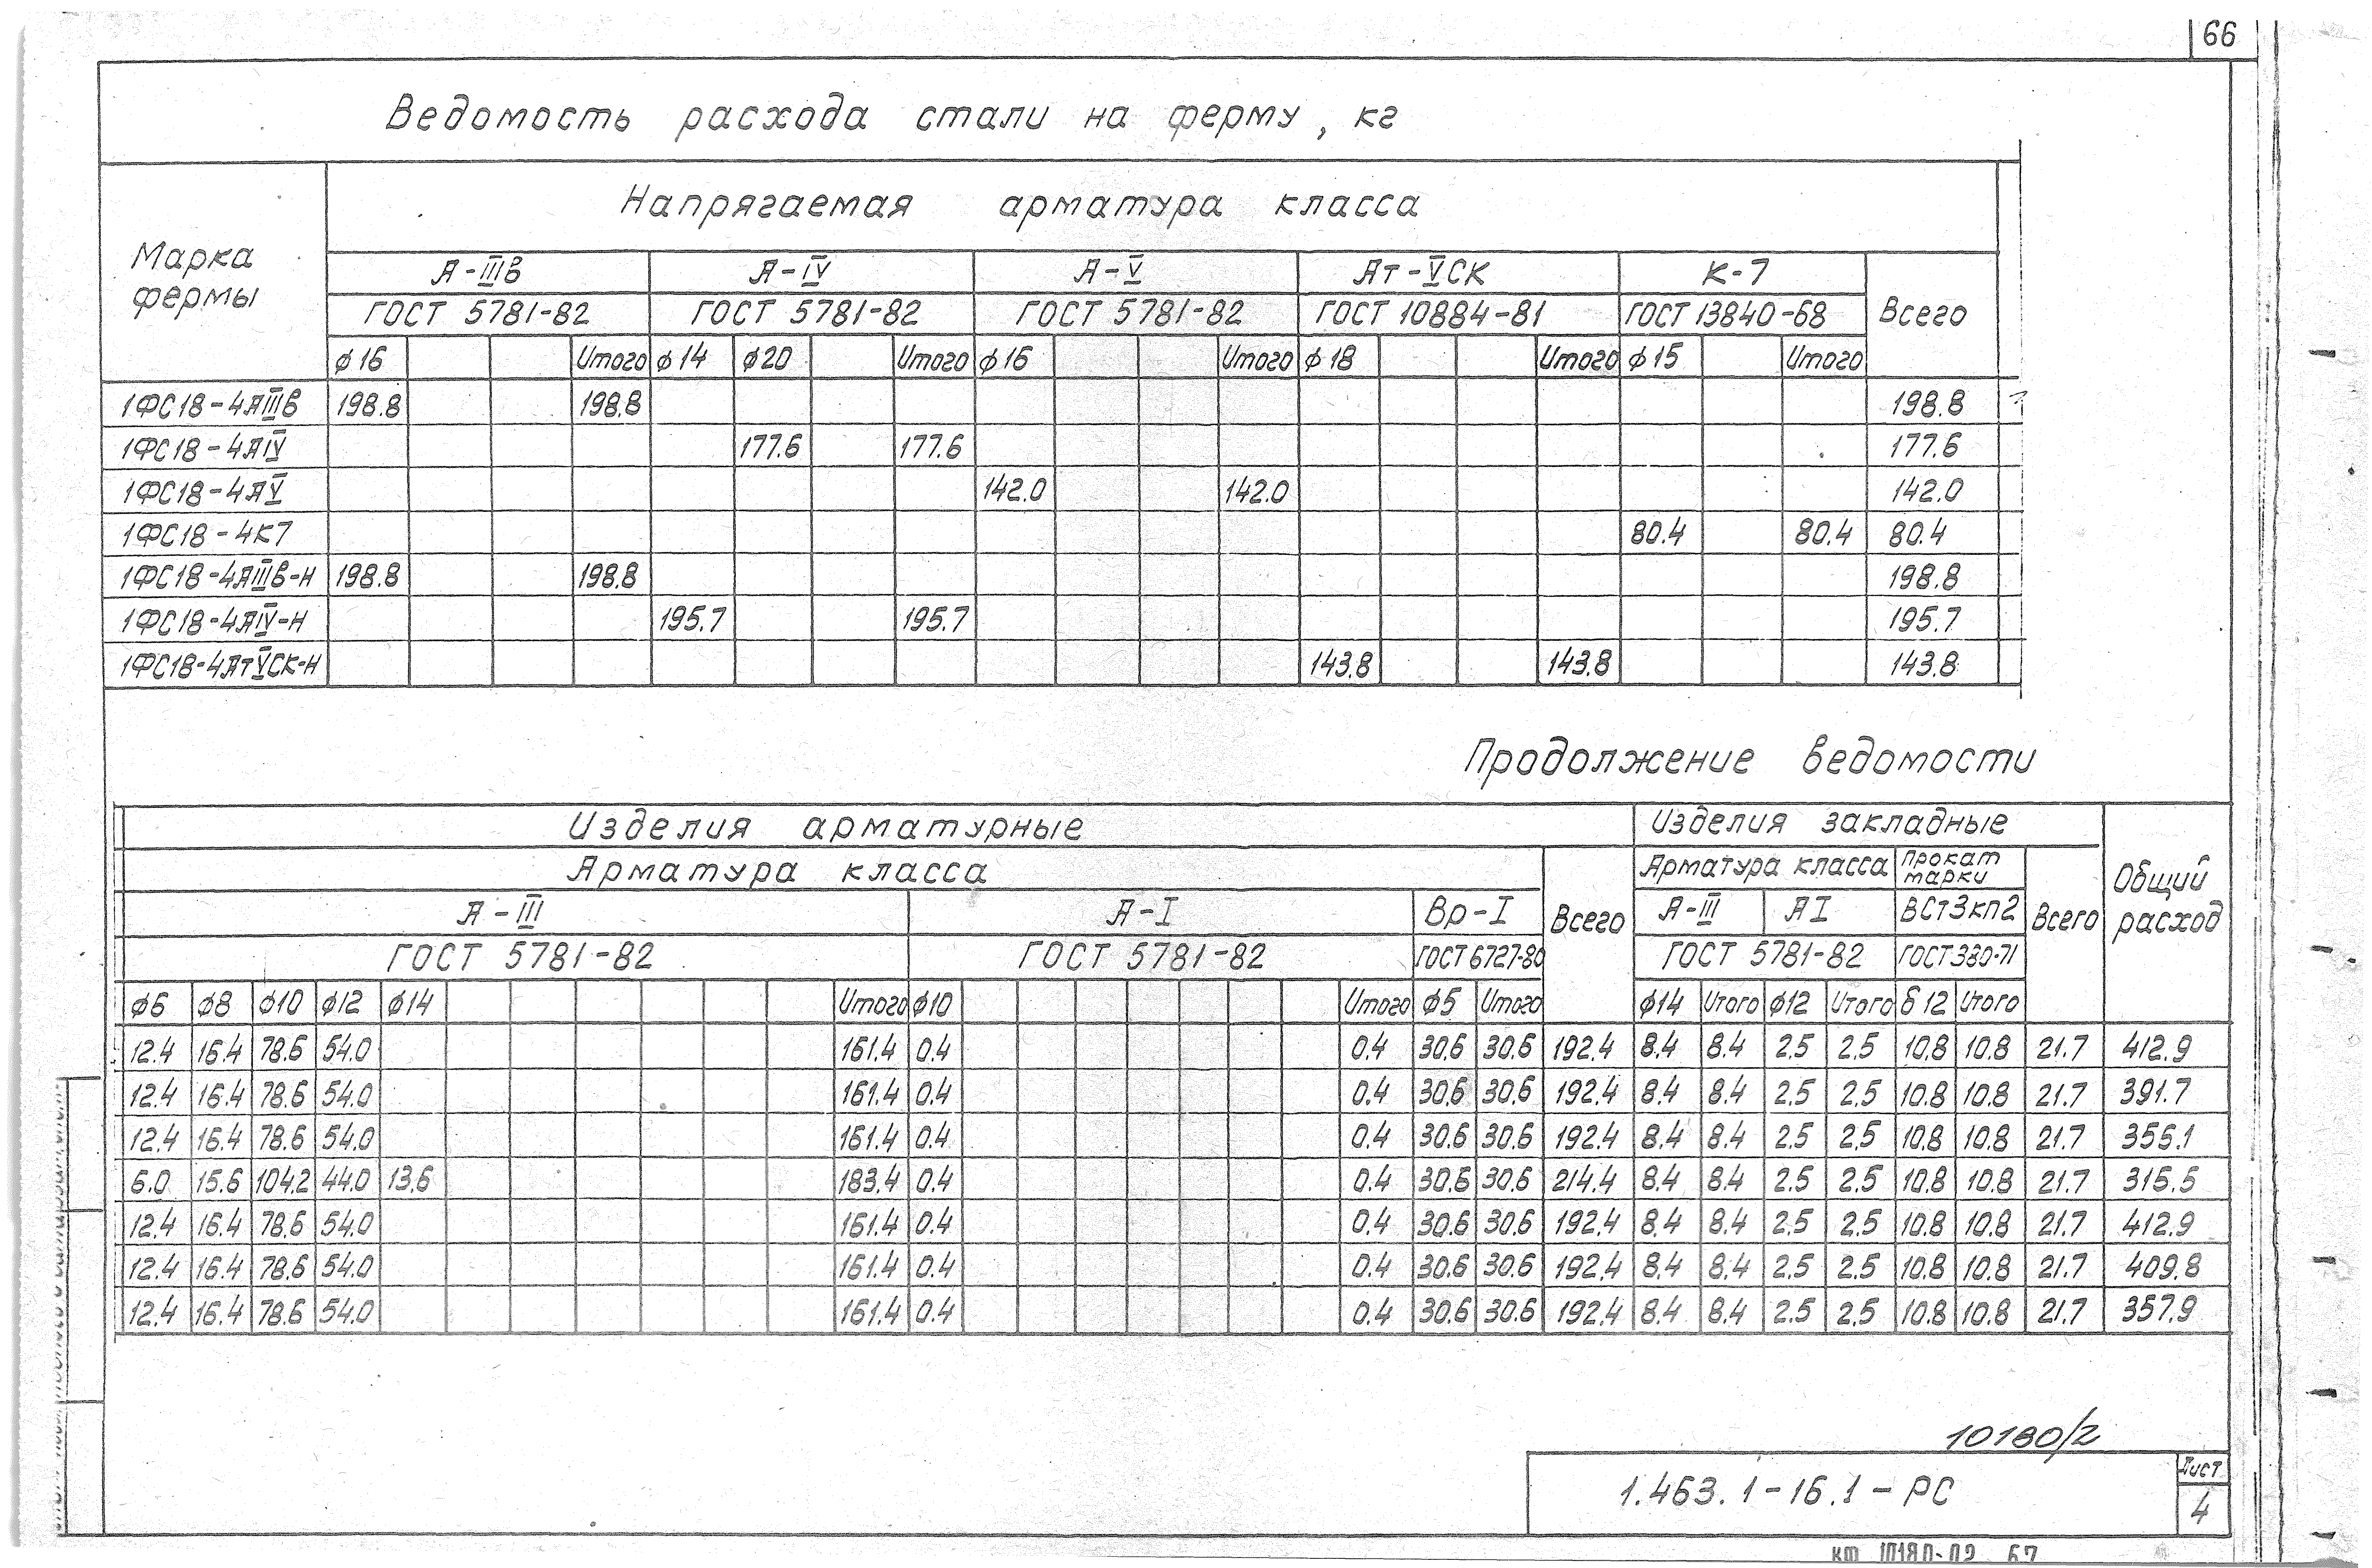 66
Ведомость расхода стали на ферму, кг
Марка фермы
Напрягаемая арматура класса
А-IIIв А-IV А-V Ат-VСК К-7 Всего
ГОСТ 5781-82 ГОСТ 5781-82 ГОСТ 5781-82 ГОСТ 10884-81 ГОСТ 13840-68
ф16 Итого ф14 ф20 Итого ф16 Итого ф18 Итого ф15 Итого
1ФС18-4АIIIв 198.8 198.8 198.8
1ФС18-4АIV 177.6 177.6 177.6
1ФС18-4АV 142.0 142.0 142.0
1ФС18-4К7 80.4 80.4 80.4
1ФС18-4АIIIв-Н 198.8 198.8 198.8
1ФС18-4АIV-Н 195.7 195.7 195.7
1ФС18-4АтVСК-Н 143.8 143.8 143.8
Продолжение ведомости
Изделия арматурные Изделия закладные Общий расход
Арматура класса Всего Арматура класса Прокат марки Всего
А-III А-I Вр-I А-III АI ВСт3кп2
ГОСТ 5781-82 ГОСТ 5781-82 ГОСТ 6727-80 ГОСТ 5781-82 ГОСТ 380-71
ф6 ф8 ф10 ф12 ф14 Итого ф10 Итого ф5 Итого ф14 Итого ф12 Итого δ12 Итого
12.4 16.4 78.6 54.0 161.4 0.4 0.4 30.6 30.6 192.4 8.4 8.4 2.5 2.5 10.8 10.8 21.7 412.9
12.4 16.4 78.6 54.0 161.4 0.4 0.4 30.6 30.6 192.4 8.4 8.4 2.5 2.5 10.8 10.8 21.7 391.7
12.4 16.4 78.6 54.0 161.4 0.4 0.4 30.6 30.6 192.4 8.4 8.4 2.5 2.5 10.8 10.8 21.7 356.1
6.0 15.6 104.2 44.0 13.6 183.4 0.4 0.4 30.6 30.6 214.4 8.4 8.4 2.5 2.5 10.8 10.8 21.7 316.5
12.4 16.4 78.6 54.0 161.4 0.4 0.4 30.6 30.6 192.4 8.4 8.4 2.5 2.5 10.8 10.8 21.7 412.9
12.4 16.4 78.6 54.0 161.4 0.4 0.4 30.6 30.6 192.4 8.4 8.4 2.5 2.5 10.8 10.8 21.7 409.8
12.4 16.4 78.6 54.0 161.4 0.4 0.4 30.6 30.6 192.4 8.4 8.4 2.5 2.5 10.8 10.8 21.7 357.9
10180/2
1.463.1-16.1-РС
Лист
4
КФ 10180-02 67